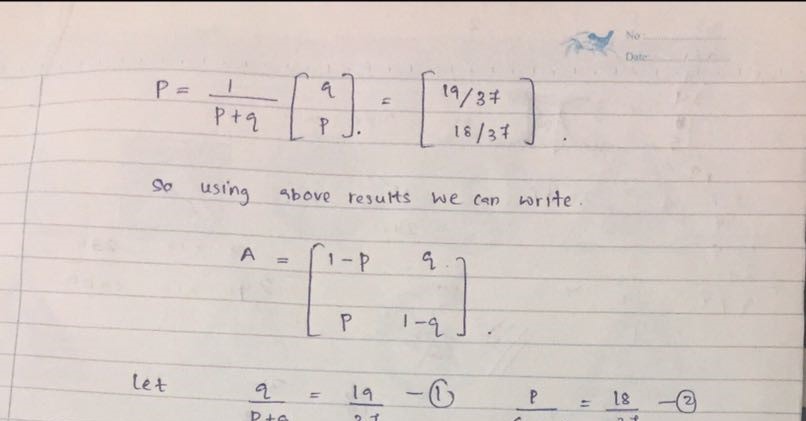 No
Date
P = 1/(P+q) [q P]. = [19/37 18/37].
So using above results we can write.
A = [1-P q P 1-q].
Let q/P+q = 19/37 - ① P/ = 18/37 - ②